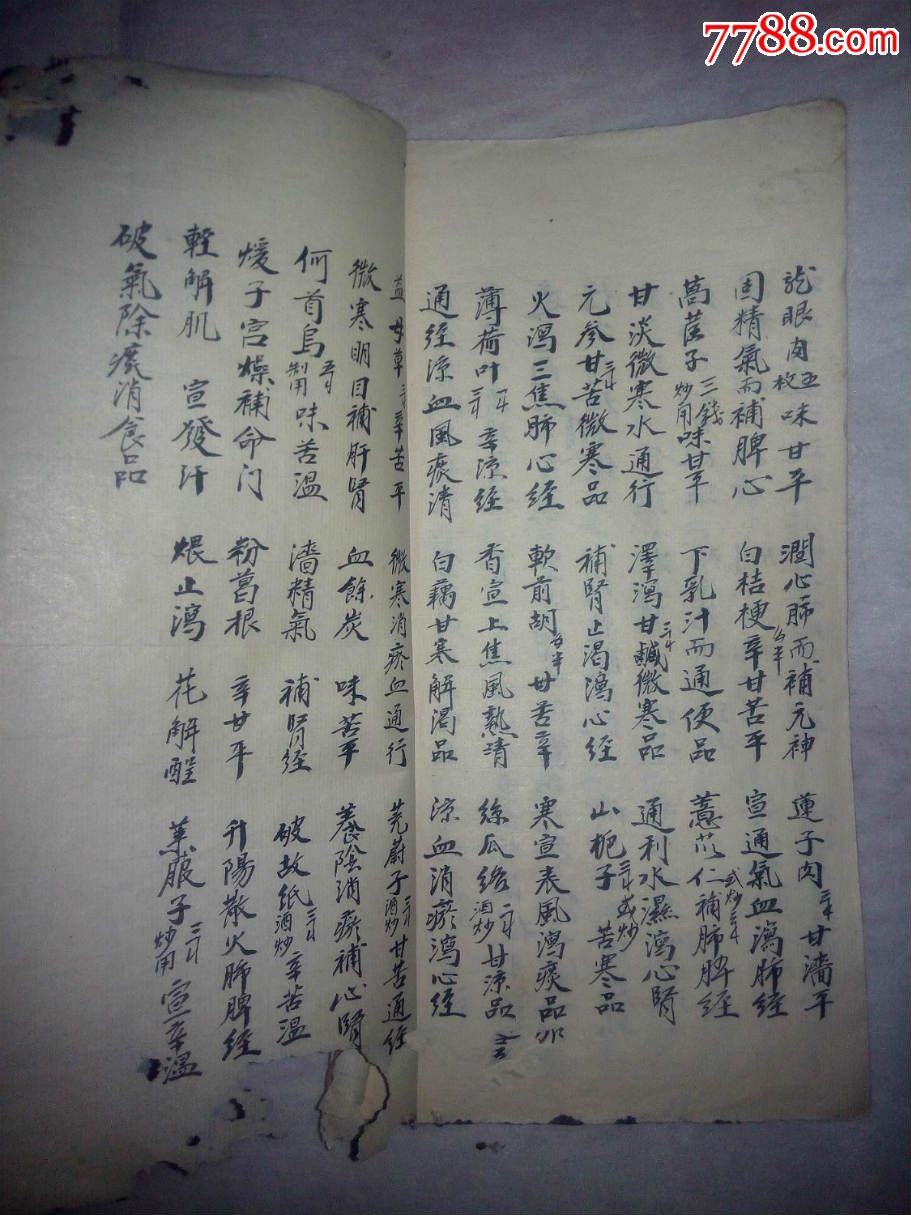 7788.com
龍眼肉五枚味甘平 潤心肺而補元神 蓮子肉三钱甘濇平
固精氣而補脾心 白桔梗辛甘苦平 宣通氣血瀉肺經
萵苣子三錢炒用味甘平 下乳汁而通便品 薏苡仁補肺脾經
甘淡微寒水通行 澤瀉甘鹹微寒品 通利水濕瀉心腎
元參甘苦微寒品 補腎止渴瀉心經 山栀子或炒苦寒品
火瀉三焦肺心經 軟前胡甘苦辛 寒宣表風瀉痰品
薄荷叶辛涼經 香宣上焦風熱清 絲瓜络酒炒甘涼品
通經涼血風痰清 白藕甘寒解渴品 涼血消瘀瀉心經
益母草辛苦平 微寒消瘀血通行 茺蔚子酒炒甘苦通經
微寒明目補肝腎 血餘炭 味苦平 養陰消瘀補心腎
何首烏制用味苦溫 濇精氣 補腎經 破故紙酒炒辛苦溫
煖子宮燥補命门 粉葛根 辛甘平 升陽散火肺脾經
輕解肌 宣發汗 煨止瀉 花解酲 萊服子炒用宣辛溫
破氣除痰消食品